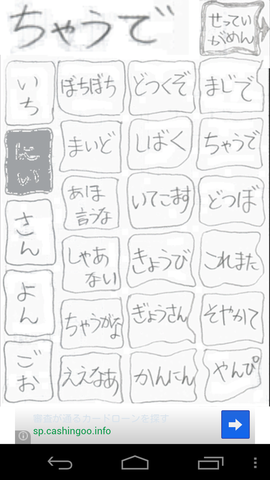 ちゃうで
せってい
がめん
いち
にい
さん
よん
ごお
ぼちぼち
どつくぞ
まじで
まいど
しばく
ちゃうで
あほ
言うな
いてこます
どつぼ
しゃあ
ない
きょうび
これまた
ちゃうがな
ぎょうさん
そやかて
ええなあ
かんにん
やんぴ
審査が通るカードローンを探して
sp.cashingoo.info